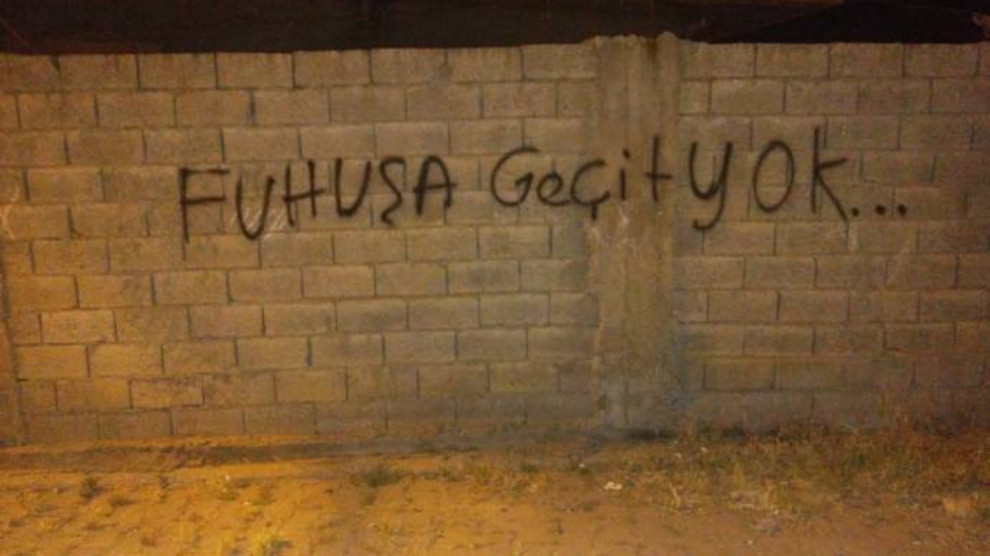 FUHUŞA GeçitYOK...